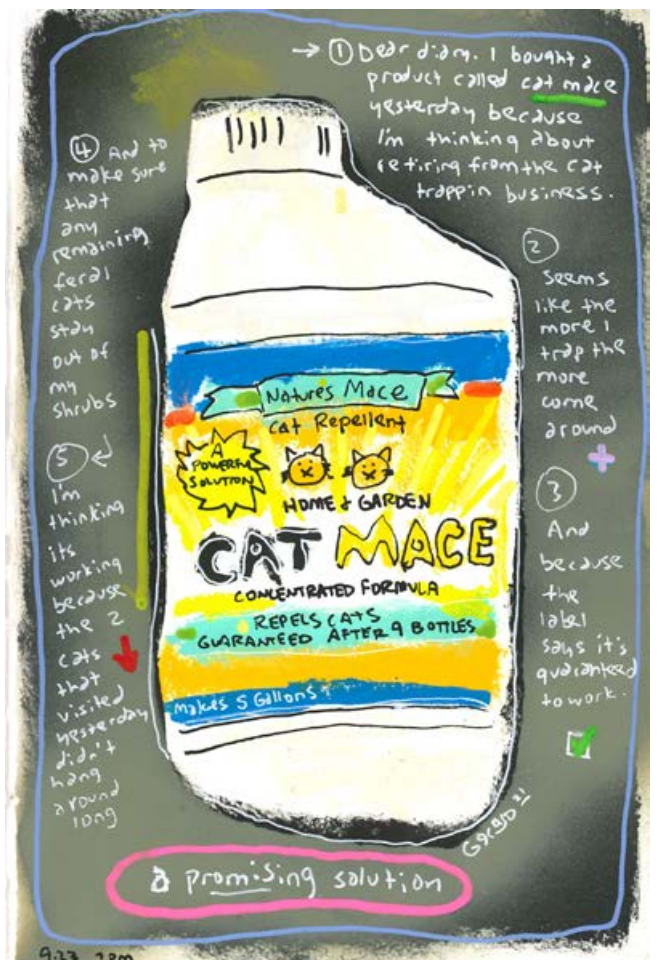 → ① Dear diary. I bought a
product called cat mace
yesterday because
I'm thinking about
retiring from the cat
trappin business.
②
Seems
like the
more I
trap the
more
come
around
③
And
because
the
label
says it's
guaranteed
to work.
④ And to
make sure
that
any
remaining
feral
cats
stay
out of
my
shrubs
⑤
I'm
thinking
its
working
because
the 2
cats
that
visited
yesterday
didn't
hang
around
long
Natures Mace
Cat Repellent
A
POWERFUL
SOLUTION
HOME & GARDEN
CAT MACE
CONCENTRATED FORMULA
REPELS CATS
GUARANTEED AFTER 9 BOTTLES
Makes 5 Gallons
a promising solution